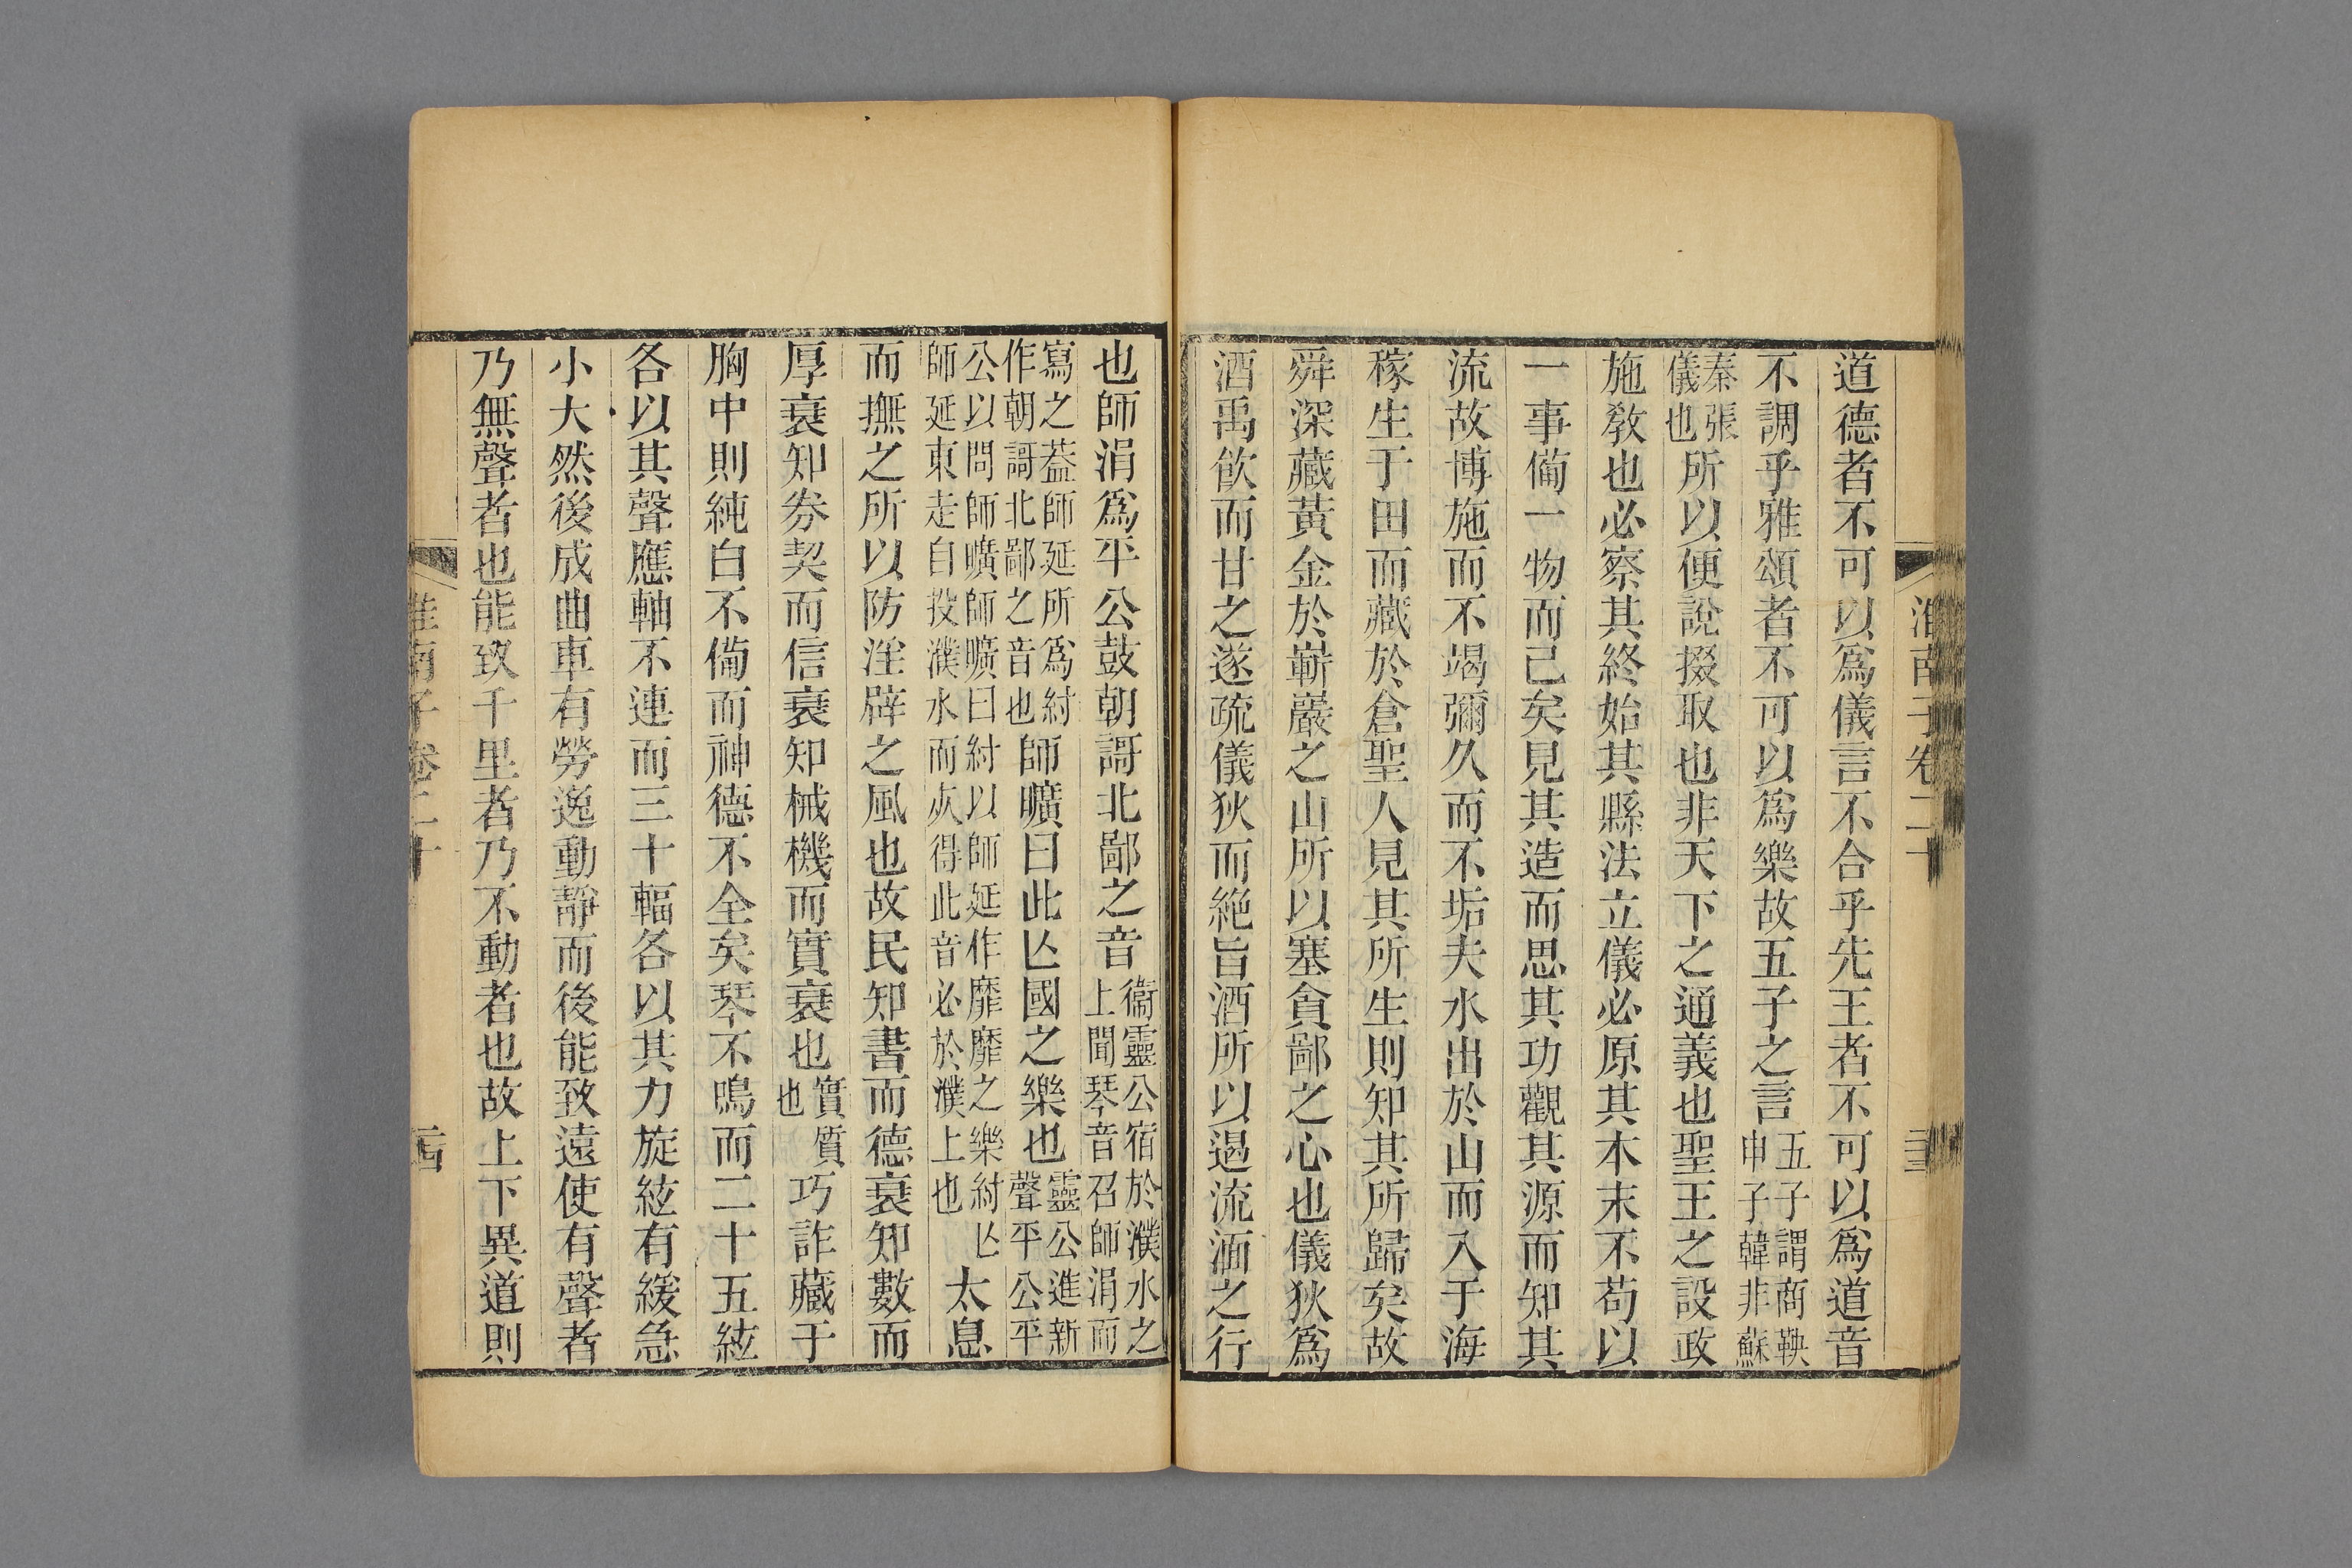 淮南子卷二十
道德者不可以爲儀言不合乎先王者不可以爲道音
不調乎雅頌者不可以爲樂故五子之言五子謂商鞅申子韓非蘇
秦張儀也所以便說掇取也非天下之通義也聖王之設政
施敎也必察其終始其縣法立儀必原其本末不苟以
一事備一物而已矣見其造而思其功觀其源而知其
流故博施而不竭彌久而不垢夫水出於山而入于海
稼生于田而藏於倉聖人見其所生則知其所歸矣故
舜深藏黃金於嶄巖之山所以塞貪鄙之心也儀狄爲
酒禹飮而甘之遂疏儀狄而絕旨酒所以遏流湎之行
也師涓爲平公鼓朝謌北鄙之音衞靈公宿於濮水之上聞琴音召師涓而
寫之葢師延所爲紂作朝謌北鄙之音也師曠曰此亾國之樂也靈公進新聲平公平
公以問師曠師曠曰紂以師延作靡靡之樂紂亾師延東走自投濮水而灰得此音必於濮上也太息
而撫之所以防淫辟之風也故民知書而德衰知數而
厚衰知券契而信衰知械機而實衰也實質也巧詐藏于
胸中則純白不備而神德不全矣琴不鳴而二十五絃
各以其聲應軸不連而三十輻各以其力旋絃有緩急
小大然後成曲車有勞逸動靜而後能致遠使有聲者
乃無聲者也能致千里者乃不動者也故上下異道則
淮南子卷二十